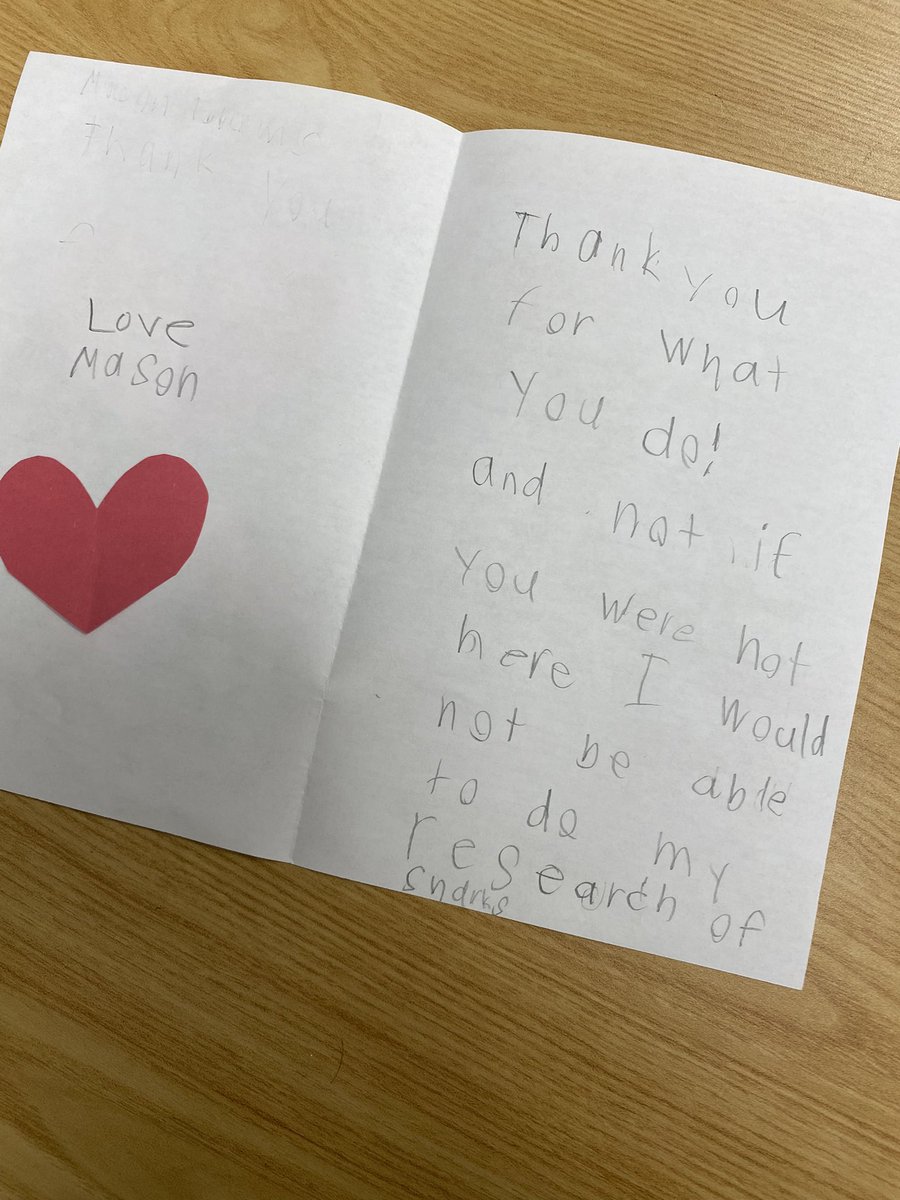 Thank You
Love
Mason
Thank you
for what
you do!
and not if
you were not
here I would
not be able
to do my
research of
sharks